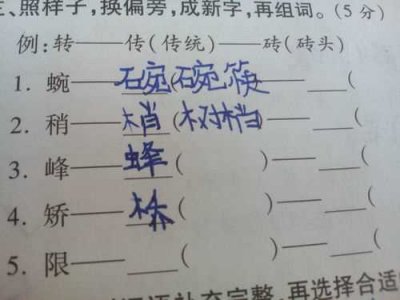 三、照样子，换偏旁，成新字，再组词。(5 分)
例：转——传(传统)——砖(砖头)
1. 蜿——碗(碗筷——___(
2. 稍——梢(树梢)——___(
3. 峰——蜂(      )——___(
4. 矫——桥(      )——___(
5. 限——___(      )——___(
补充完整，再选择合适